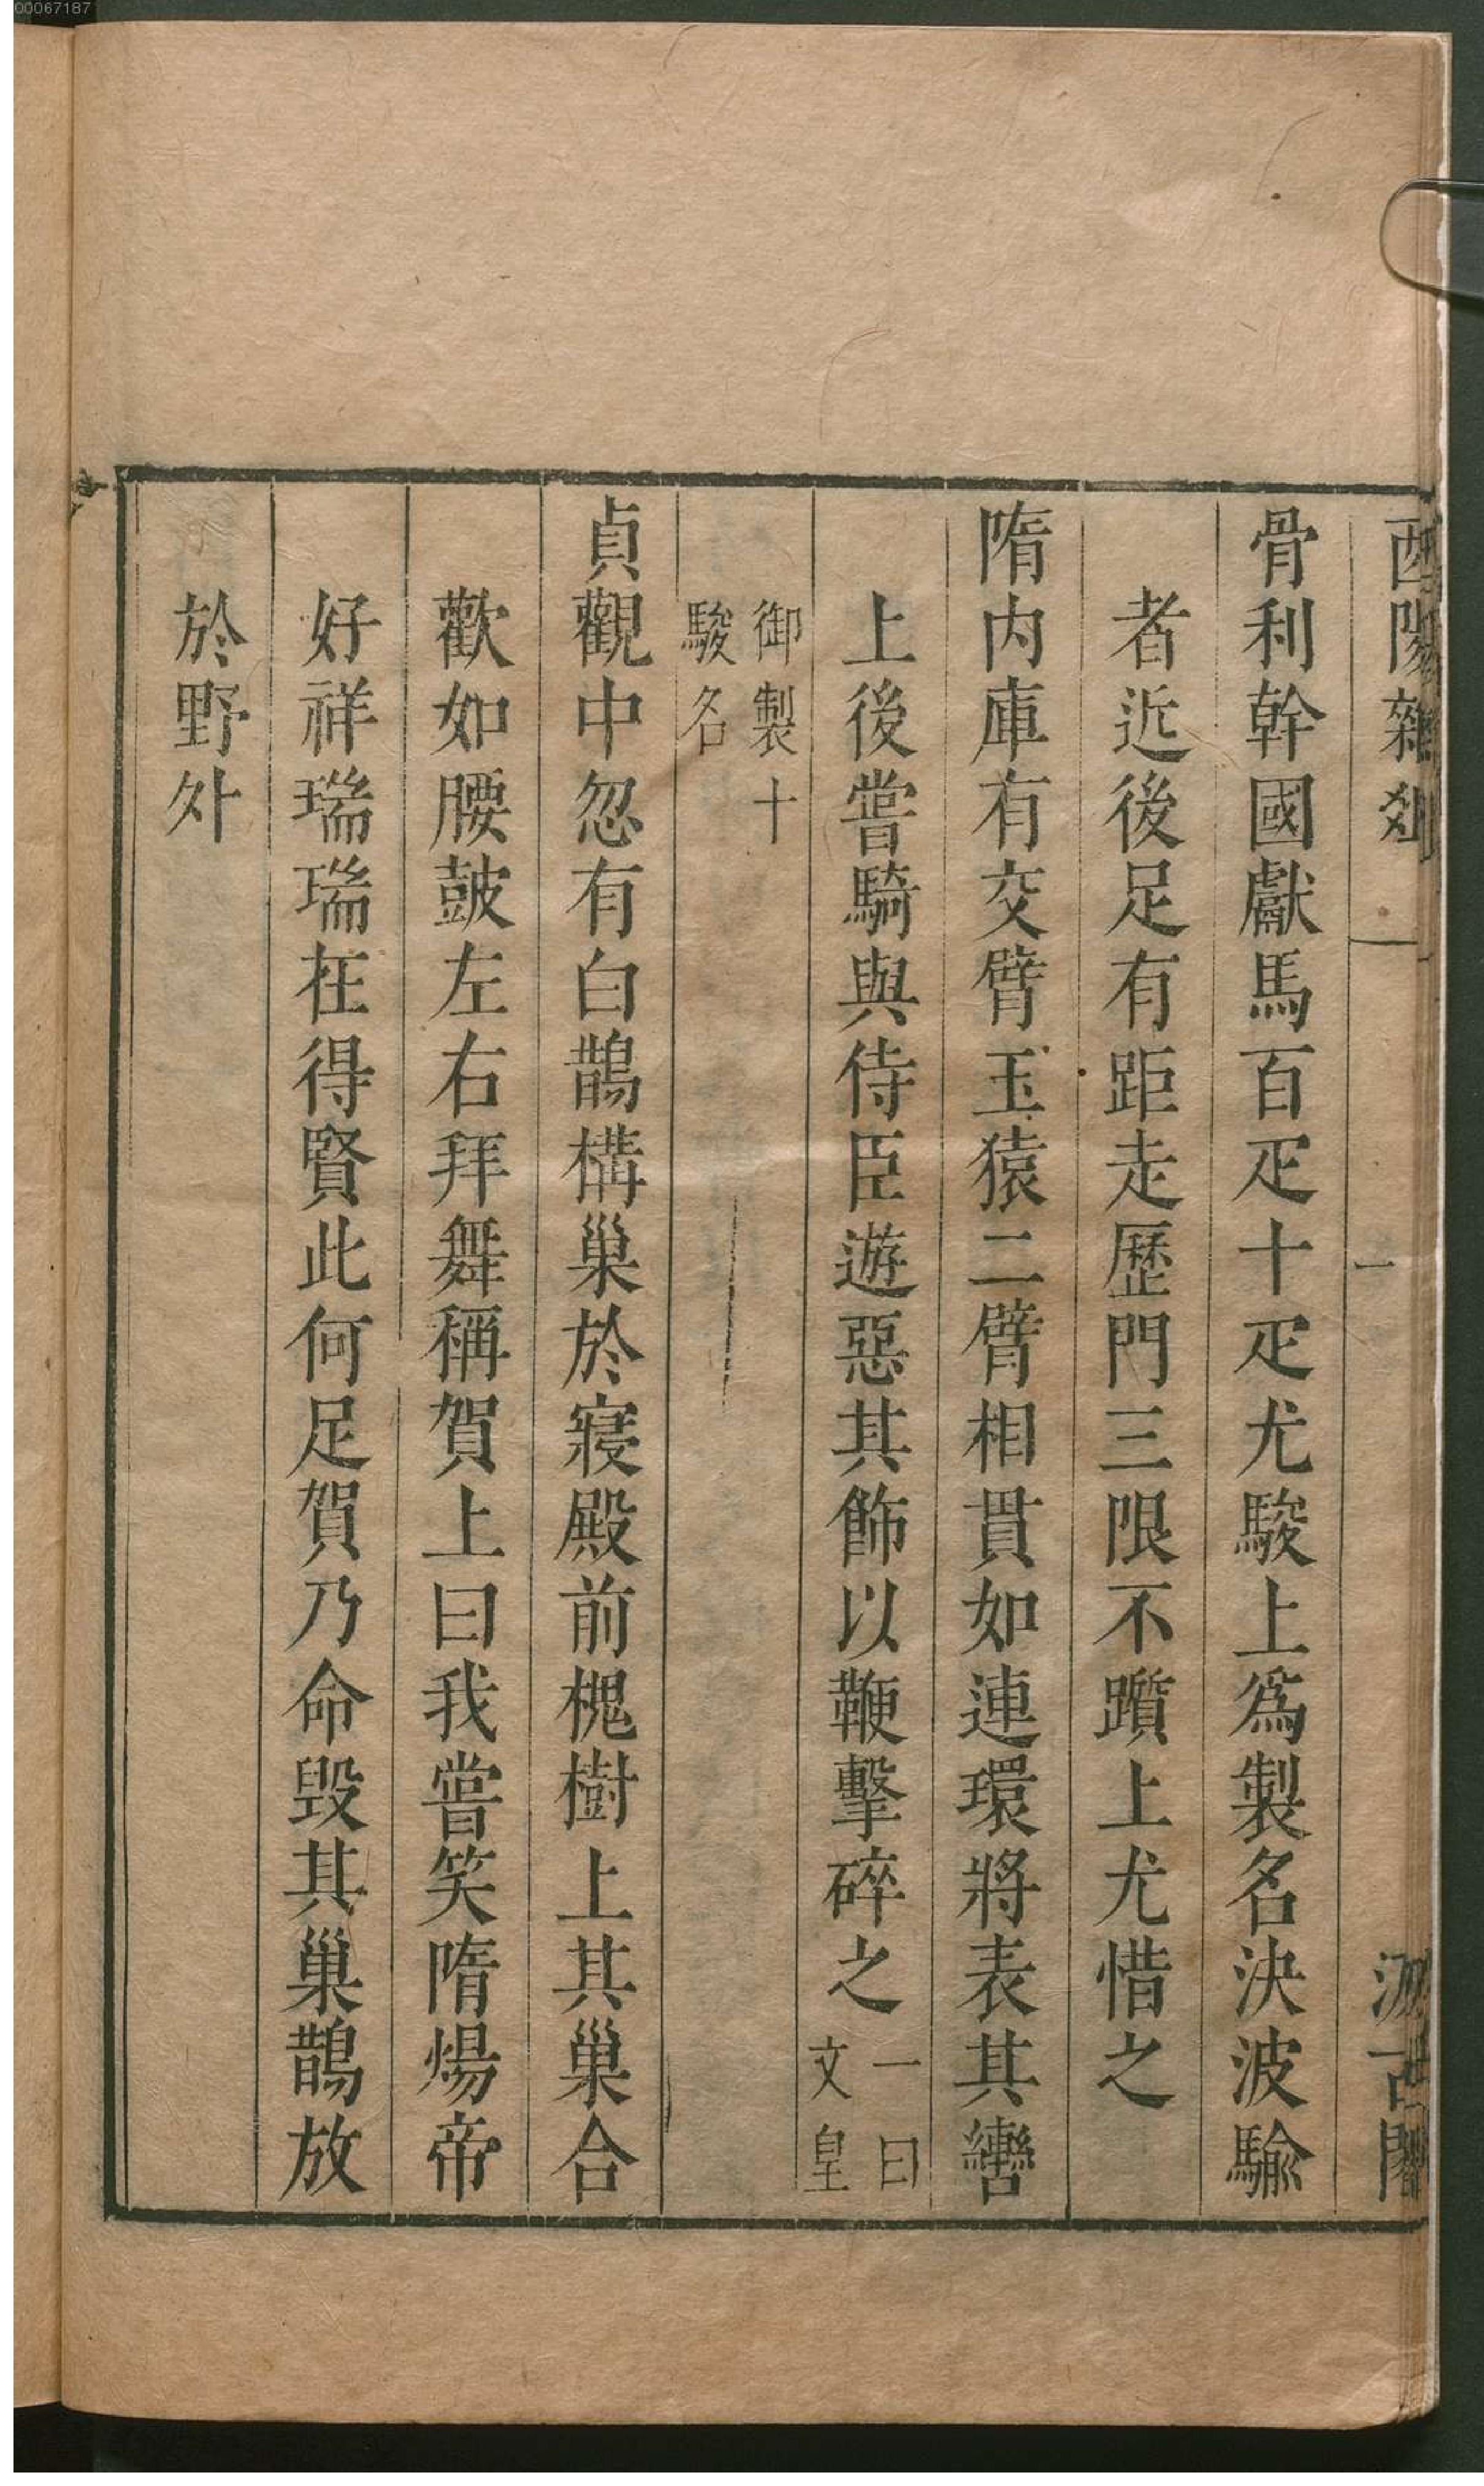 00067187
酉陽雜俎
一
汲古閣
骨利幹國獻馬百疋十疋尤駿上爲製名決波騟
者近後足有距走歷門三限不躓上尤惜之
隋内庫有交臂玉猿二臂相貫如連環將表其轡
上後嘗騎與侍臣遊惡其飾以鞭擊碎之一曰文皇
御製十駿名
貞觀中忽有白鵲構巢於寢殿前槐樹上其巢合
歡如腰皷左右拜舞稱賀上曰我嘗笑隋煬帝
好祥瑞瑞在得賢此何足賀乃命毀其巢鵲放
於野外